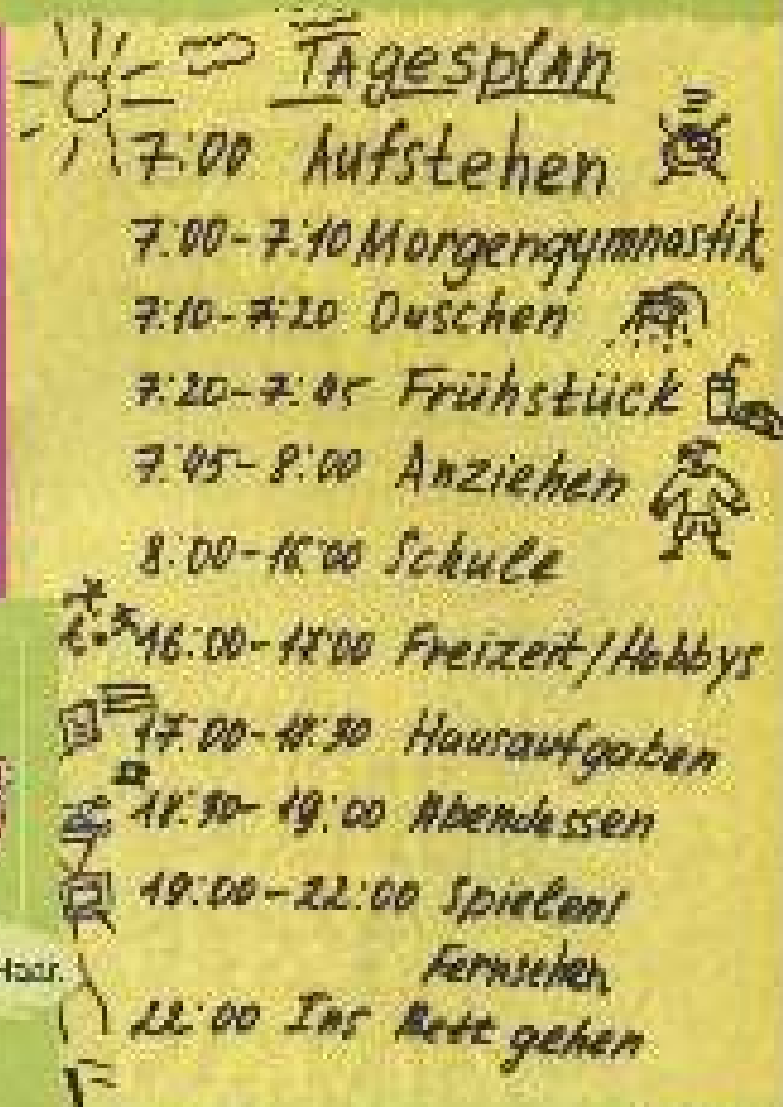 Tagesplan
7:00 Aufstehen
7:00-7:10 Morgengymnastik
7:10-7:20 Duschen
7:20-7:45 Frühstück
7:45-8:00 Anziehen
8:00-16:00 Schule
16:00-17:00 Freizeit/Hobbys
17:00-18:30 Hausaufgaben
18:30-19:00 Abendessen
19:00-22:00 Spielen/
Fernsehen
Haar.
22:00 Ins Bett gehen